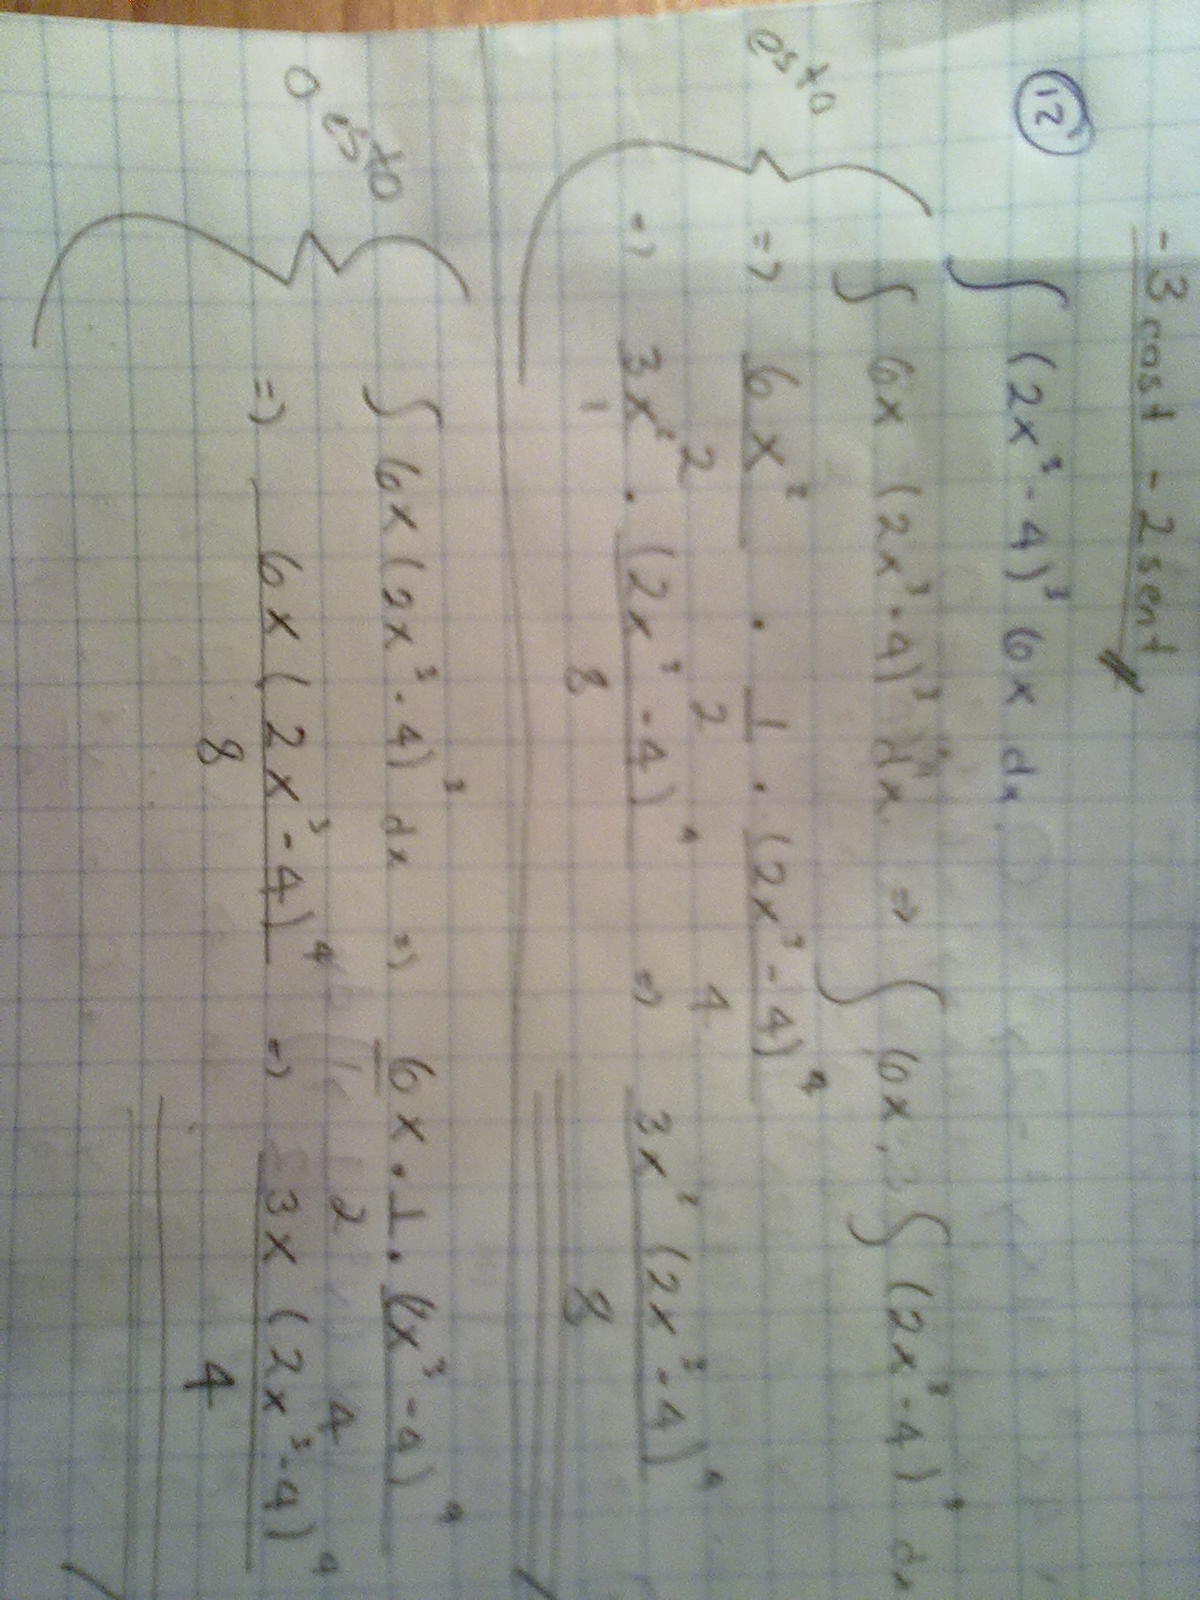 -3cost - 2sent
12
∫ (2x³ - 4)³ 6x dx
esto
∫ 6x (2x³ - 4)³ dx ⇒ ∫ 6x ∫ (2x³ - 4)³ dx
⇒ 6x²/2 · 1/2 · (2x³ - 4)⁴/4
⇒ 3x²/1 · (2x³ - 4)⁴/8 ⇒ 3x² (2x³ - 4)⁴/8
o esto
∫ 6x (2x³ - 4)³ dx ⇒ 6x · 1/2 · (2x³ - 4)⁴/4
⇒ 6x (2x³ - 4)⁴/8 ⇒ 3x (2x³ - 4)⁴/4